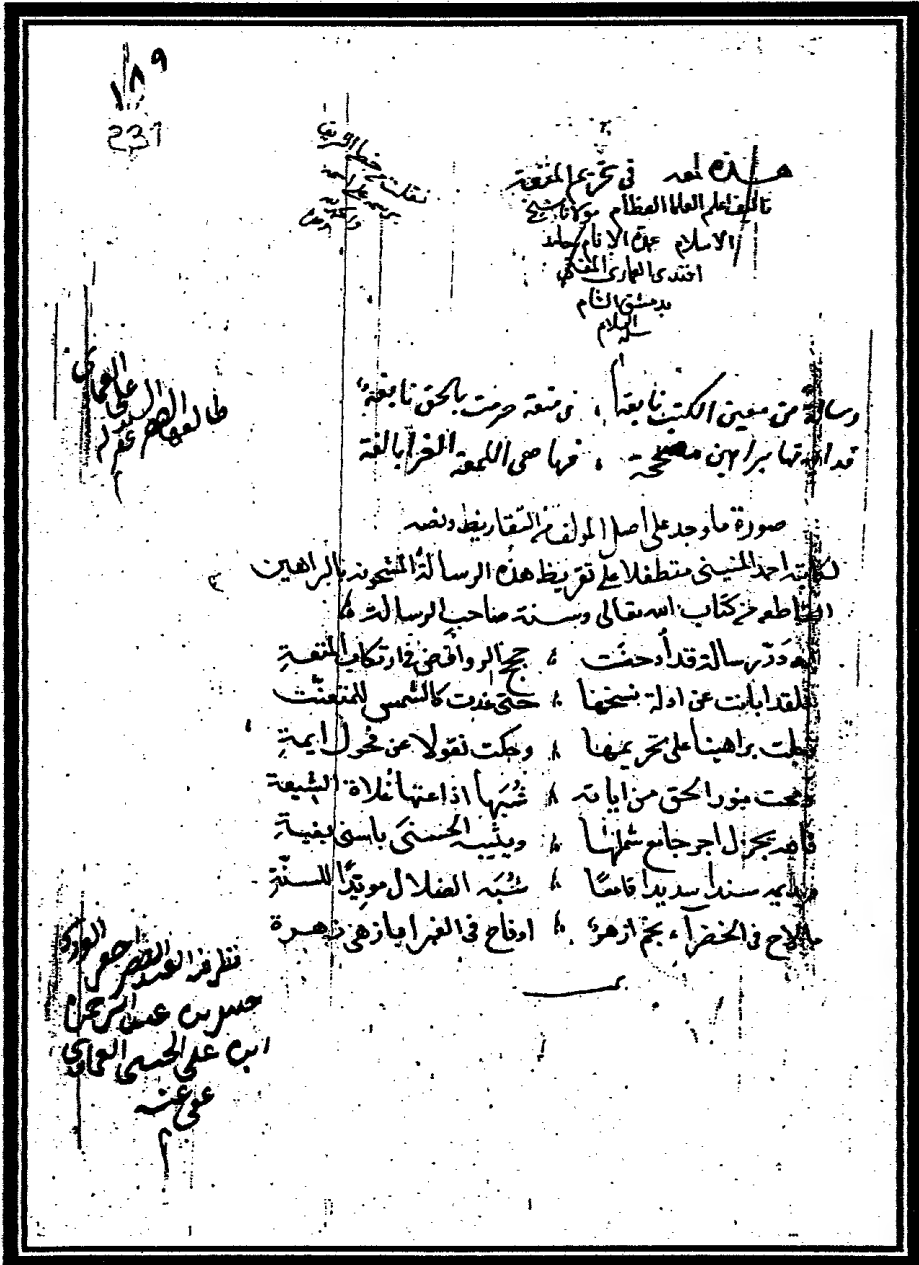 ١٨٩
231
هذه لمعه في تحريم المتعة
تاليف اعلم العلما العظام مولانا شيخ
الاسلام عمدة الانام حامد
افندي العمادي المفتي
بدمشق الشام
سلمه السلام
رسالة من معين الكتب نابغة ، في متعة حرمت بالحق نابغة
قد ببراهين مصححة ، فها هي اللمعة الغرا بالغة
صورة ما وجد على اصل المولف من التقاريظ ونصه
لكاتبه احمد المنيني متطفلا على تقريظ هذه الرسالة المشحونه بالبراهين
القاطعه من كتاب الله تعالى وسنة صاحب الرسالة
لله در رسالة قد أدحضت ، حجج الروافض في ارتكاب المتعة
فلقد ابانت عن ادلة نسخها ، حتى غدت كالشمس للمتعنت
براهينا على تحريمها ، وحكت نقولا عن فحول ايمة
ومحت بنور الحق من اياته ، شبها اذاعتها غلاة الشيعة
فالله يجزل اجر جامع شملها ، ويثيبه الحسنى باسنى بغية
ويديمه سندا سديدا قامعا ، شبه الضلال مويدا للسنة
ما لاح في الخضرآء نجم ازهر ، او فاح في الغبرا بازهى زهرة
طالعها الفقير السيد علي العمادي
نظر فيه العبد الفقير احقر الورى
حسن بن عبد الرحمن
ابن علي الحسيني العمادي
عفي عنه
م